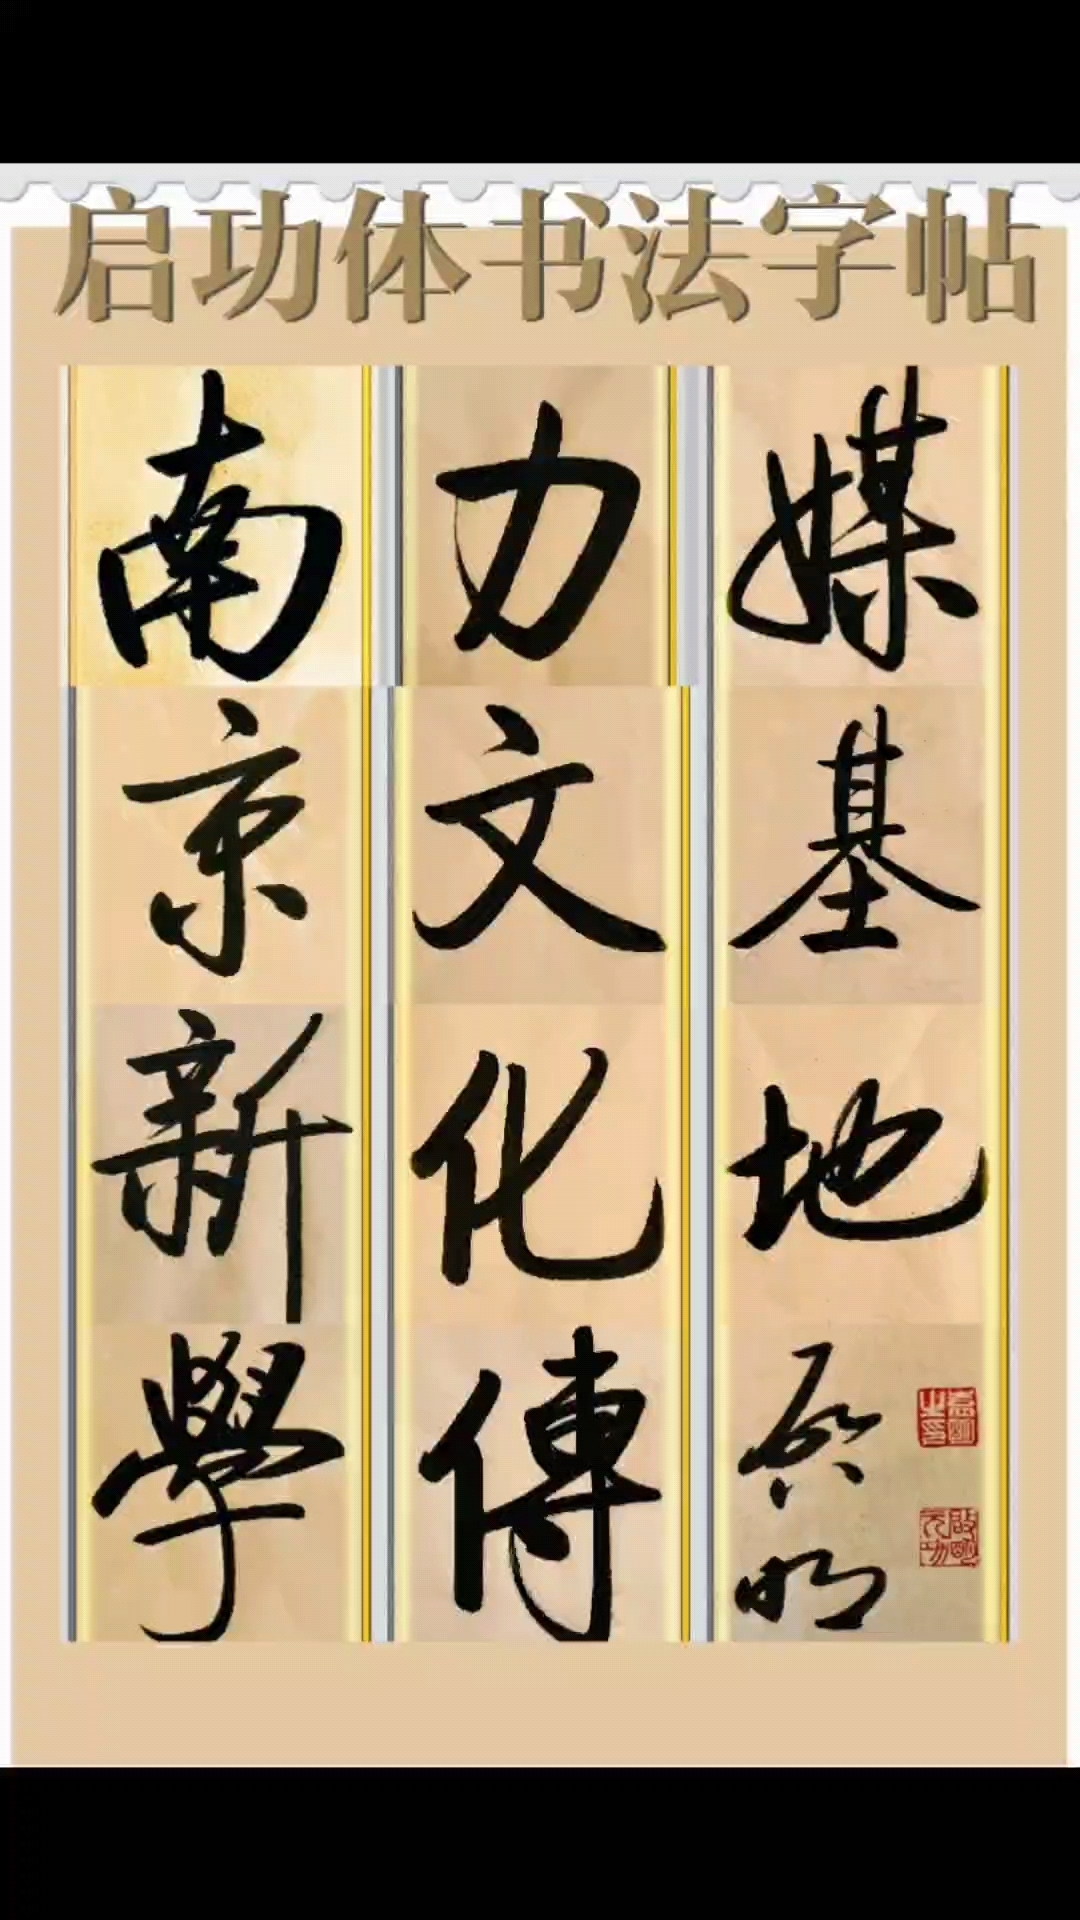 启功体书法字帖
南京新學
力文化傳
媒基地
啓明